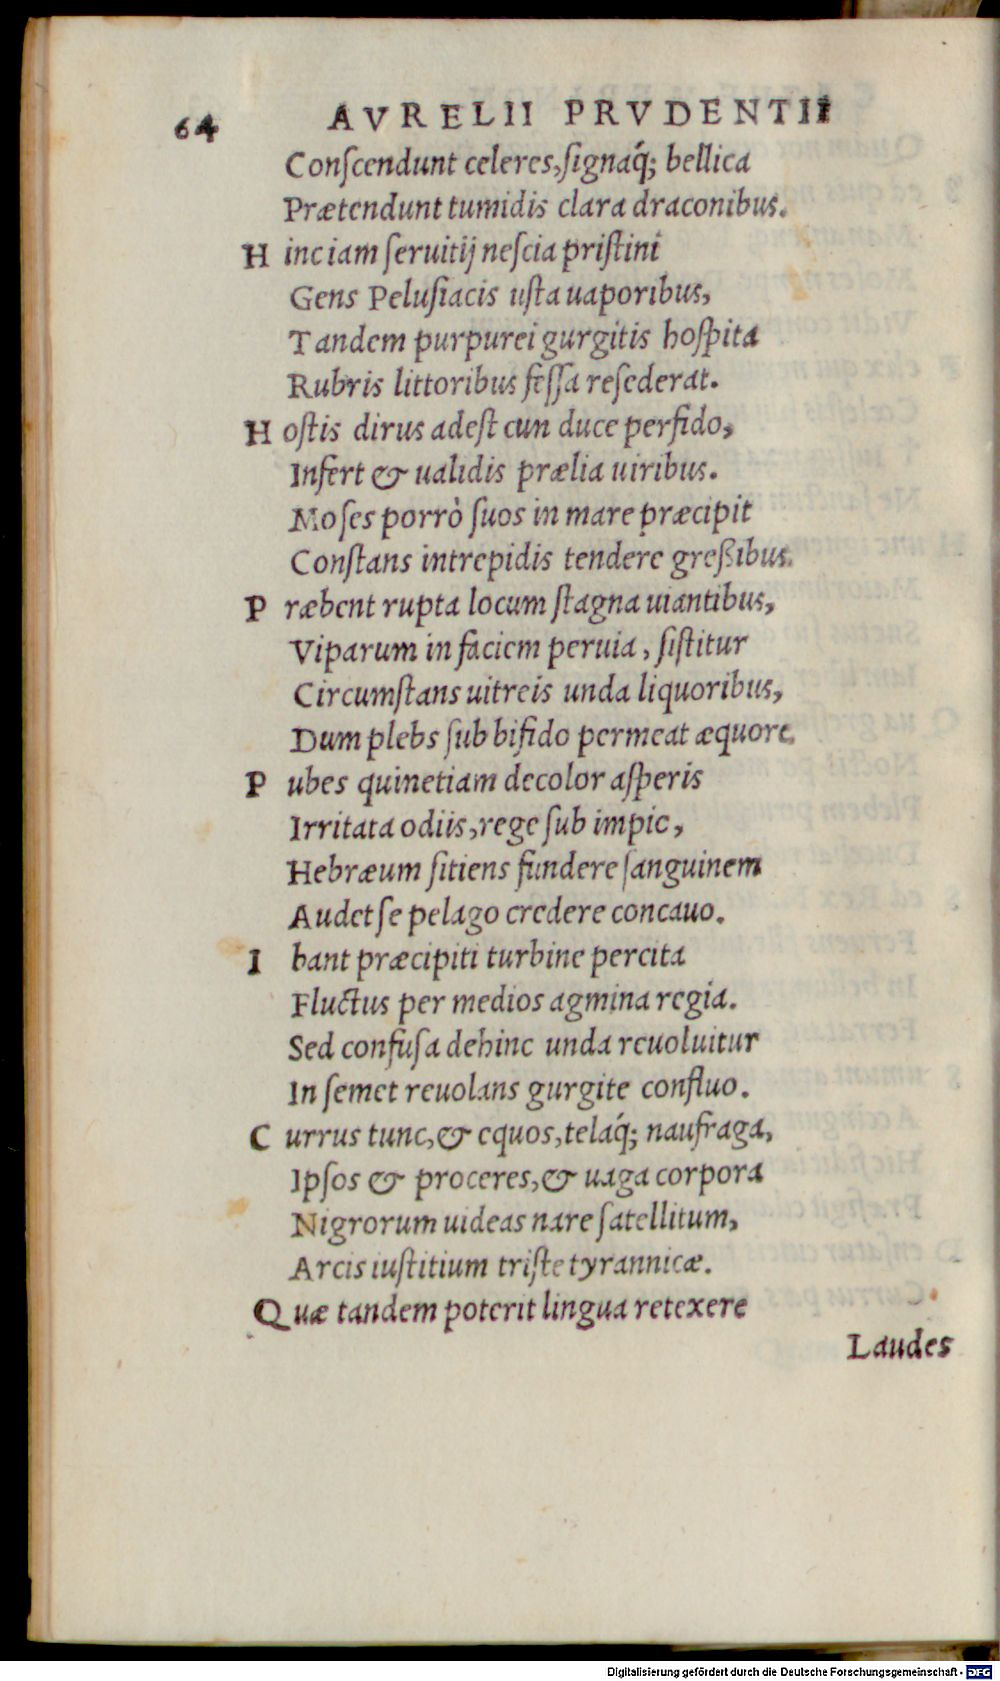 64 AVRELII PRVDENTII
Conſcendunt celeres, ſignaq́; bellica
Prætendunt tumidis clara draconibus.
H inc iam ſeruitij neſcia priſtini
Gens Peluſiacis uſta uaporibus,
Tandem purpurei gurgitis hoſpita
Rubris littoribus feſſa reſederat.
H oſtis dirus adeſt cun duce perfido,
Infert & ualidis prælia uiribus.
Moſes porrò ſuos in mare præcipit
Conſtans intrepidis tendere greßibus.
P ræbent rupta locum ſtagna uiantibus,
Viparum in faciem peruia, ſiſtitur
Circumſtans uitreis unda liquoribus,
Dum plebs ſub bifido permeat æquore.
P ubes quinetiam decolor aſperis
Irritata odiis, rege ſub impie,
Hebræum ſitiens fundere ſanguinem
Audet ſe pelago credere concauo.
I bant præcipiti turbine percita
Fluctus per medios agmina regia.
Sed confuſa dehinc unda reuoluitur
In ſemet reuolans gurgite confluo.
C urrus tunc, & equos, telaq́; naufraga,
Ipſos & proceres, & uaga corpora
Nigrorum uideas nare ſatellitum,
Arcis iuſtitium triſte tyrannicæ.
Q uæ tandem poterit lingua retexere
Laudes
Digitalisierung gefördert durch die Deutsche Forschungsgemeinschaft - DFG